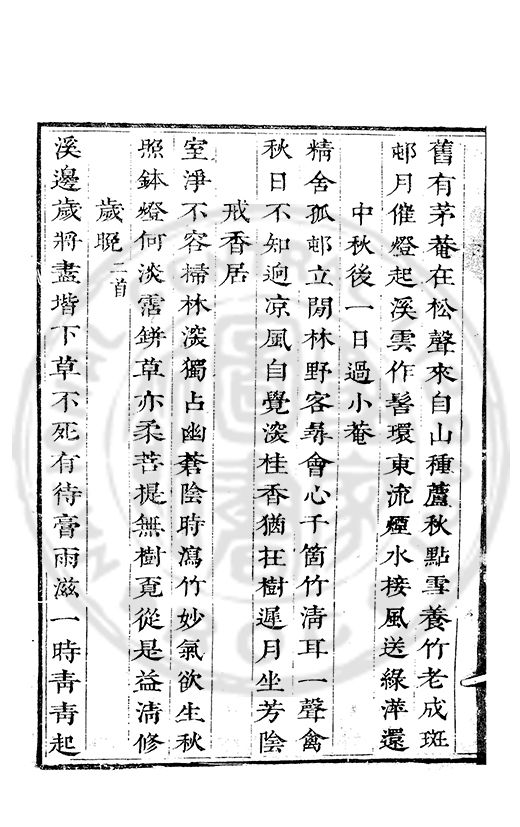 舊有茅菴在松聲來自山種蘆秋點雪養竹老成斑
邨月催燈起溪雲作髻環東流煙水接風送綠萍還
中秋後一日過小菴
精舍孤邨立閒林野客尋會心千箇竹清耳一聲禽
秋日不知逈凉風自覺深桂香猶在樹遲月坐芳陰
戒香居
室淨不容掃林深獨占幽蒼陰時瀉竹妙氣欲生秋
照鉢燈何淡霑缾草亦柔菩提無樹覔從是益清修
歲晚二首
溪邊歲將盡堦下草不死有待膏雨滋一時靑靑起